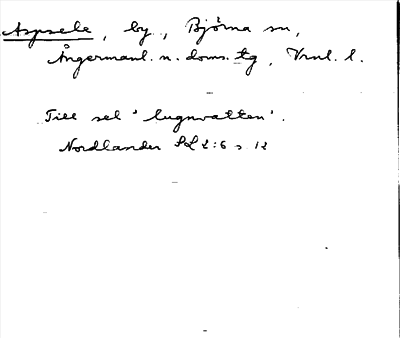 Aspsele, by, Björna sn,
Ångermanl. n. doms. tg, Vrnl. l.
Till sel 'lugnvatten'.
Nordlander SL 2:6 s. 12